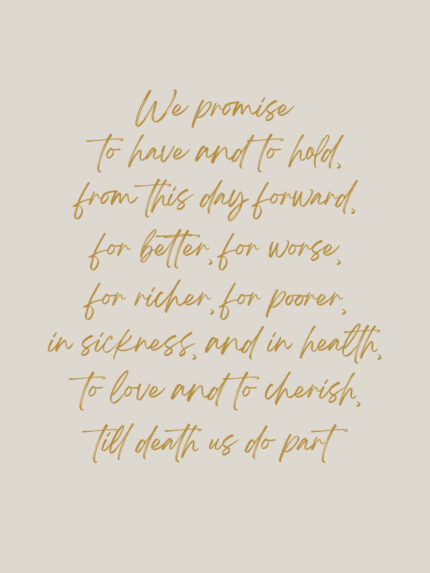 We promise
to have and to hold,
from this day forward,
for better, for worse,
for richer, for poorer,
in sickness, and in health,
to love and to cherish,
till death us do part